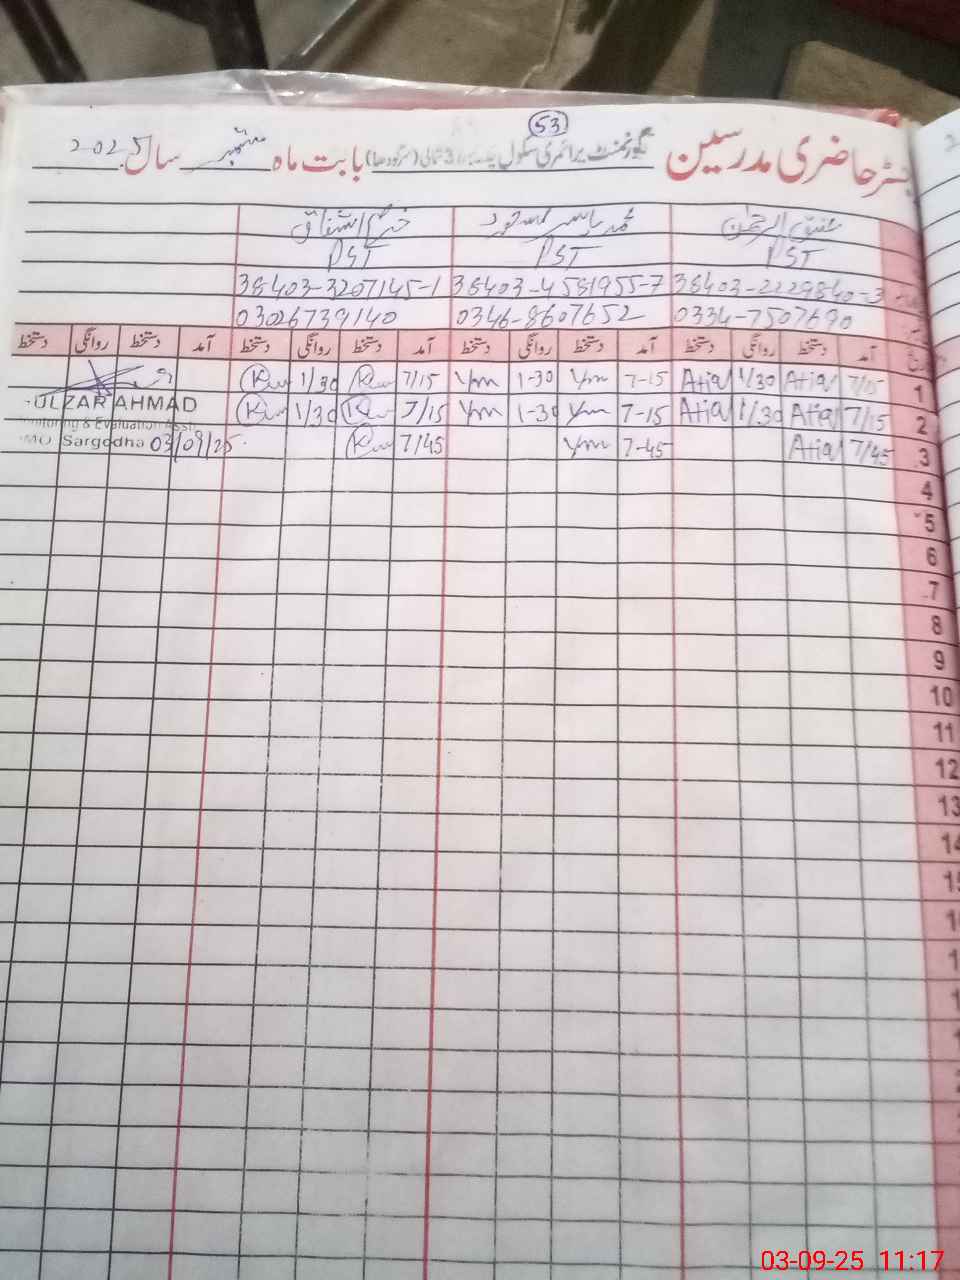 53
رجسٹر حاضری مدرسین گورنمنٹ پرائمری سکول 3 شمالی (سرگودھا) بابت ماہ ستمبر سال 2025
عتیق الرحمٰن محمد یاسر مسعود خرم اشفاق
PST PST PST
38403-2229840-3 38403-4581955-7 38403-3207145-1
0334-7507690 0346-8607652 03026739140
آمد دستخط روانگی دستخط آمد دستخط روانگی دستخط آمد دستخط روانگی دستخط آمد دستخط روانگی دستخط
1 7/15 Atiq 1/30 Atiq 7-15 Ym 1-30 Ym 7/15 1/30
2 7/15 Atiq 1/30 Atiq 7-15 Ym 1-30 Ym 7/15 1/30 GULZAR AHMAD
Monitoring & Evaluation Asstt
3 7/45 Atiq 7-45 Ym 7/45 Sargodha 03/09/25
4
5
6
7
8
9
10
11
12
13
14
15
03-09-25 11:17